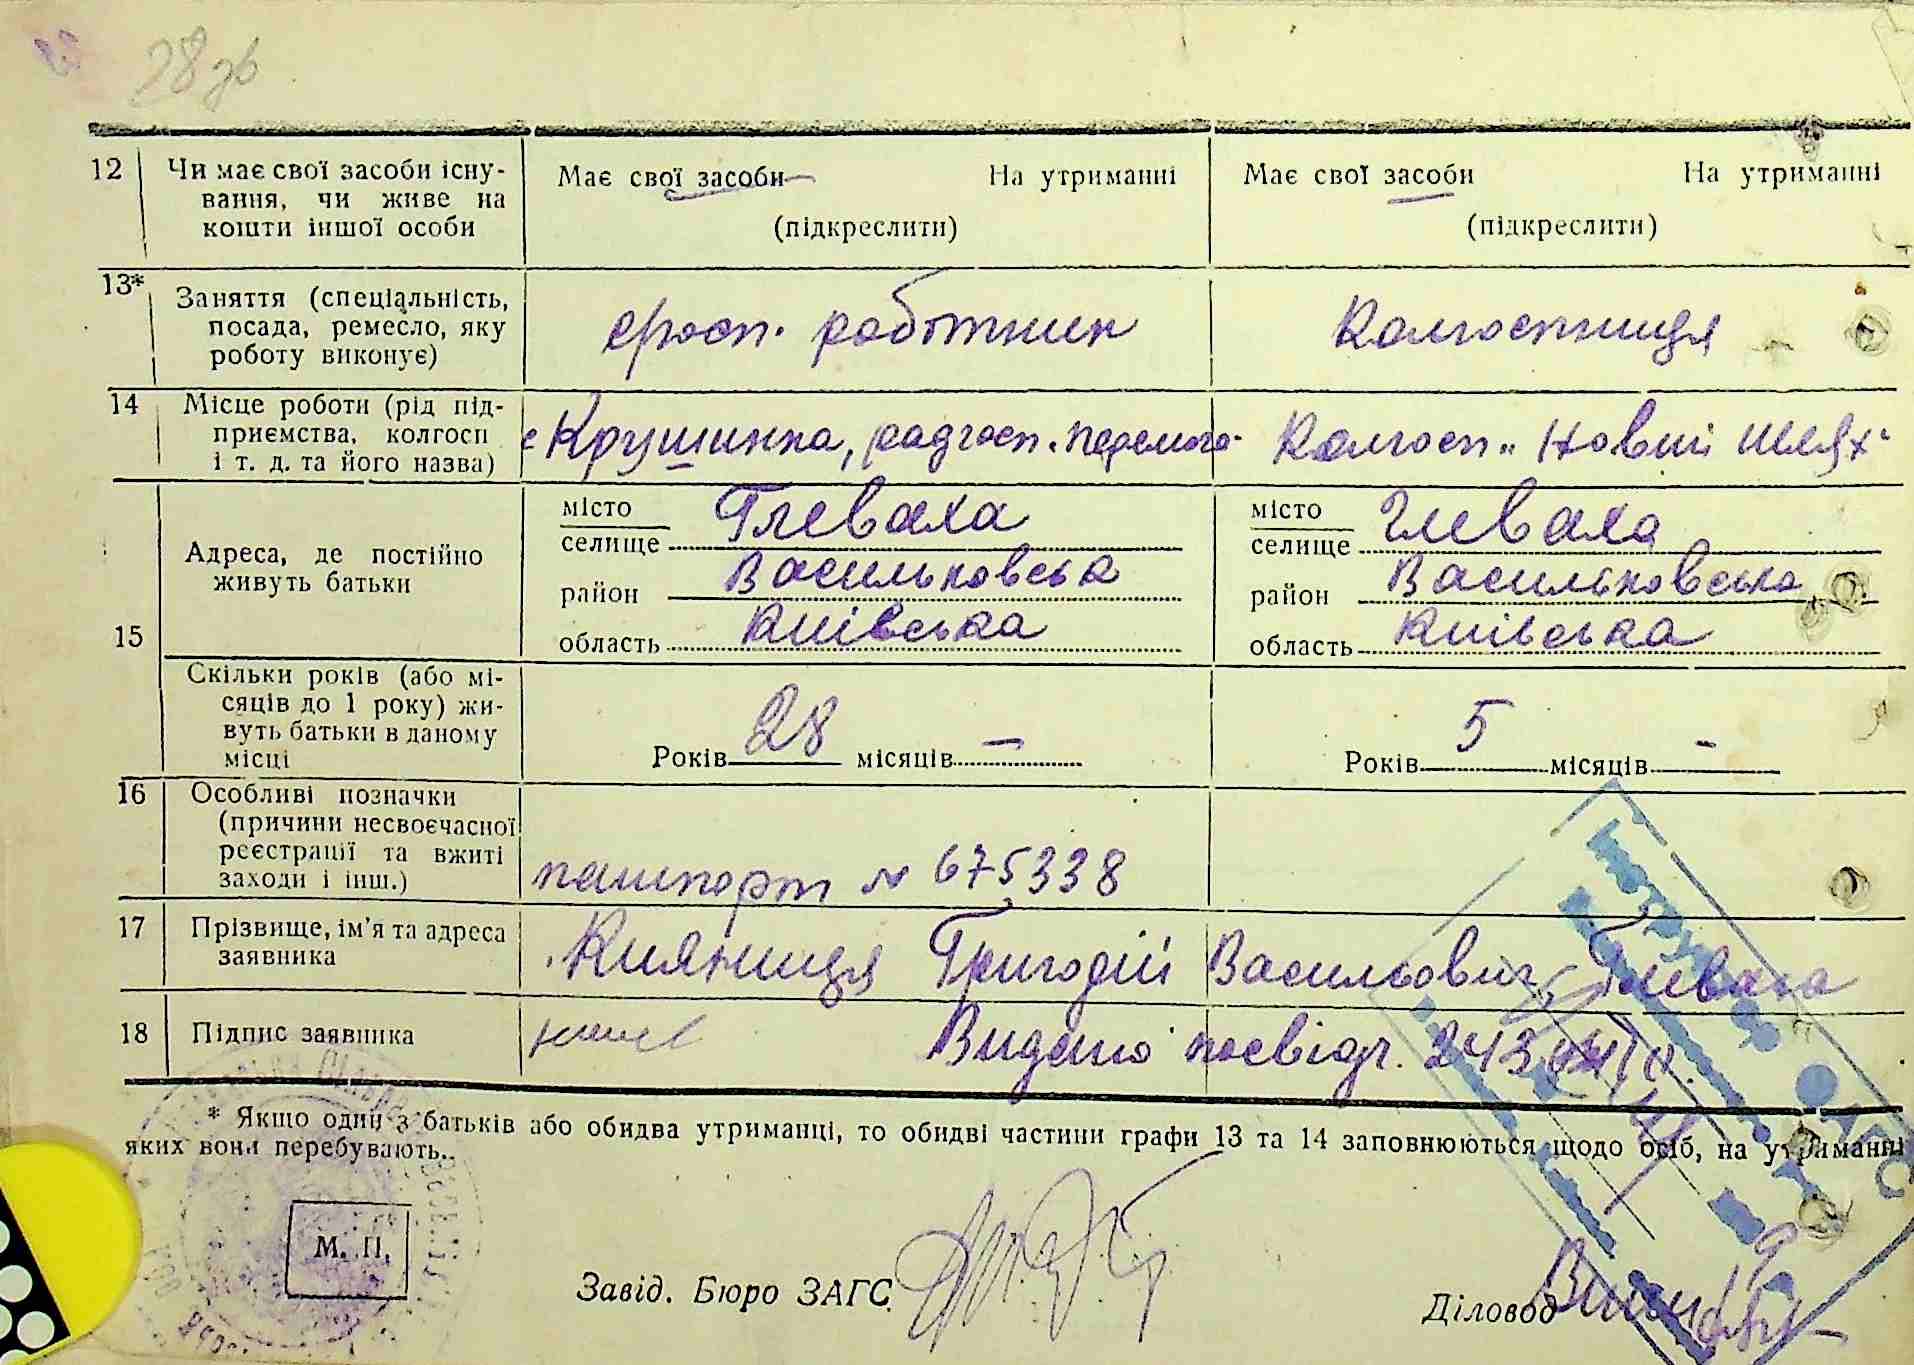 28 зв
12 Чи має свої засоби існу- Має свої засоби На утриманні Має свої засоби На утриманні
вання, чи живе на
кошти іншої особи (підкреслити) (підкреслити)
13* Заняття (спеціальність,
посада, ремесло, яку робітник Колгоспниця
роботу виконує)
14 Місце роботи (рід під-
приємства, колгосп с Крушинка, радгосп "Перемога" Колгосп "Новий шлях"
і т. д. та його назва)
місто Глеваха місто Глеваха
селище селище
Адреса, де постійно район Васильковська район Васильковська
живуть батьки
15 область Київська область Київська
Скільки років (або мі-
сяців до 1 року) жи-
вуть батьки в даному
місці Років 28 місяців — Років 5 місяців -
16 Особливі позначки
(причини несвоєчасної
реєстрації та вжиті
заходи і інш.) пашпорт № 675338
17 Прізвище, ім'я та адреса Кияниця Григорій Васильович, Глеваха
заявника
18 Підпис заявника Видано посвідч.
* Якщо один з батьків або обидва утриманці, то обидві частини графи 13 та 14 заповнюються щодо осіб, на утриманні
яких вони перебувають.
М. П.
Завід. Бюро ЗАГС
Діловод